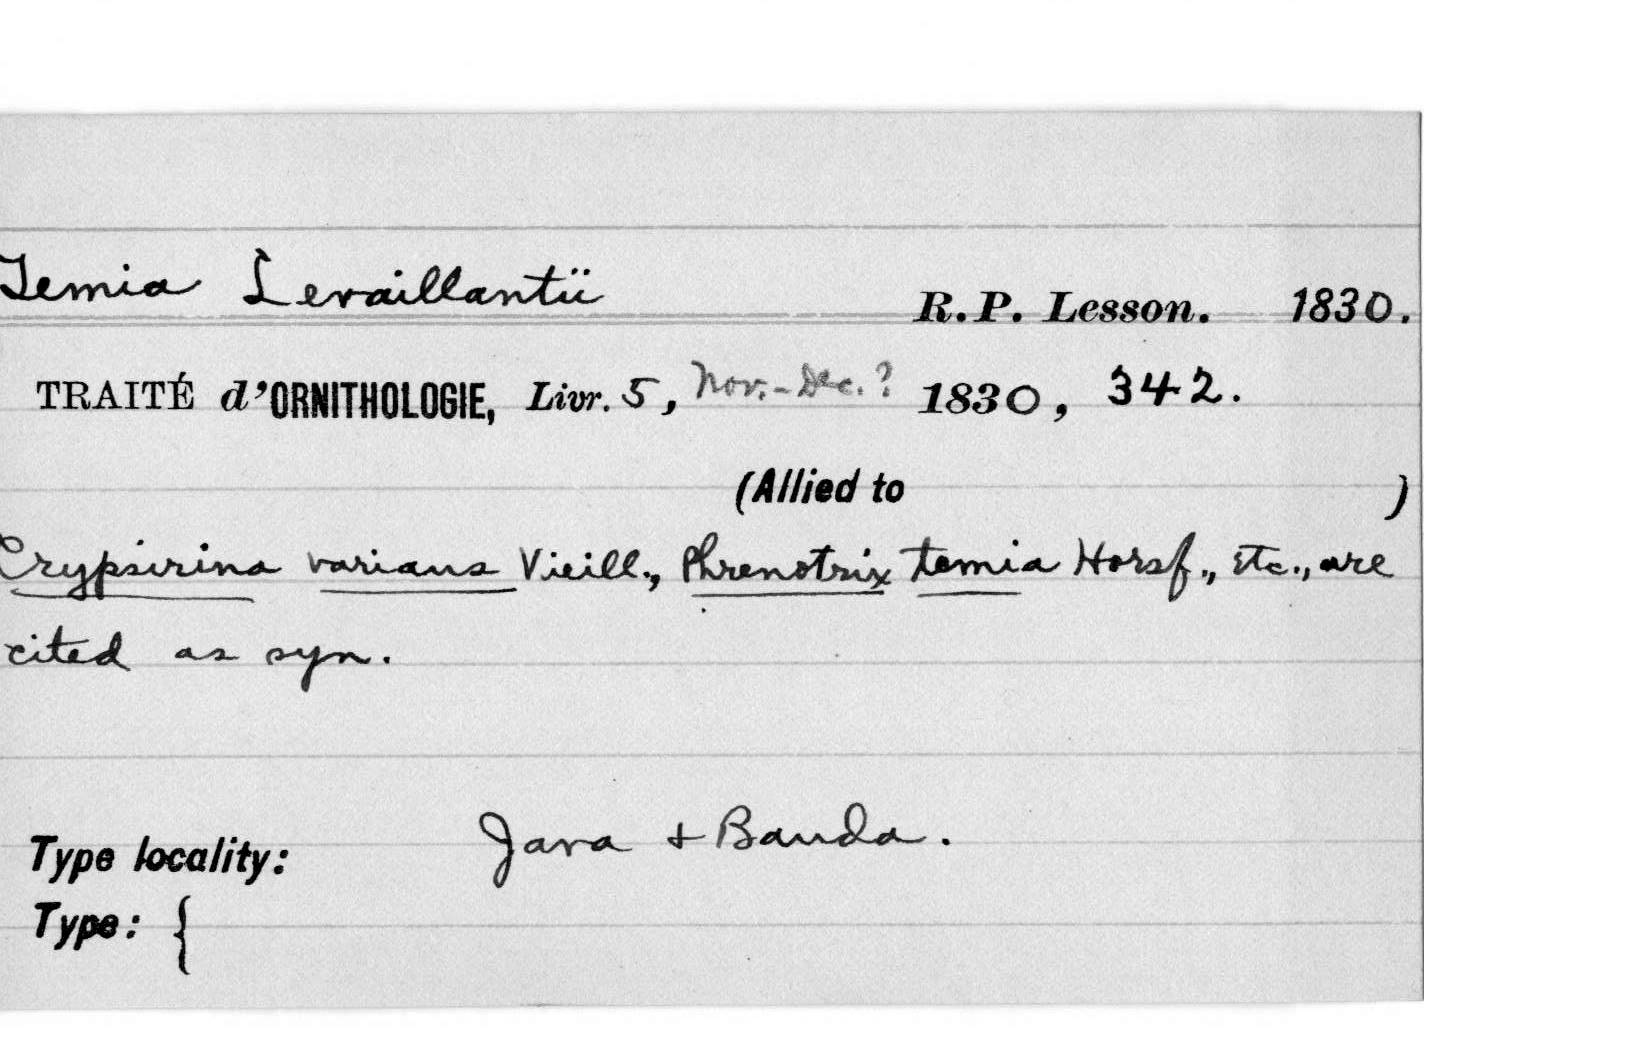 Temia Levaillantii R.P. Lesson. 1830.
TRAITÉ d'ORNITHOLOGIE, Livr. 5, Nov.-Dec.? 1830, 342.
(Allied to )
Crypsirina varians Vieill., Phrenotrix temia Horsf., etc., are
cited as syn.
Type locality: Java + Banda.
Type: {